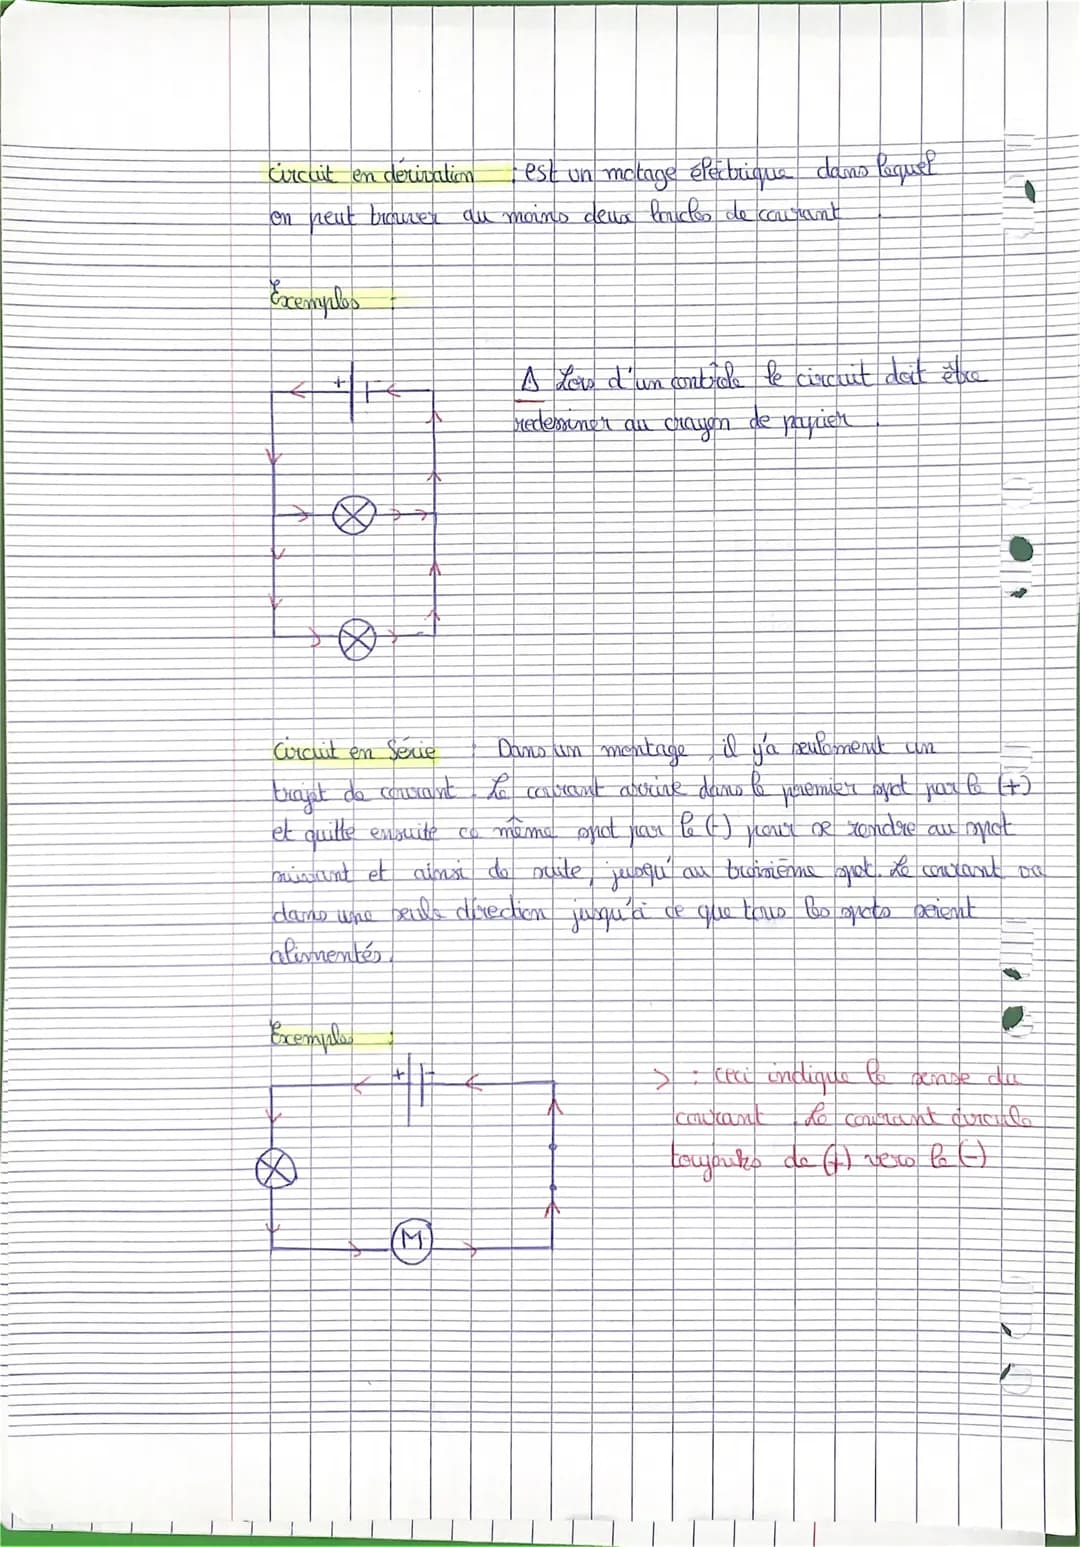 Circuit en dérivation : est un motage électrique dans lequel
on peut trouver au moins deux boucles de courant
Exemples :
+ -
⚠ Lors d'un contrôle le circuit doit être
redessiner au crayon de papier.
Circuit en Série : Dans un montage, il y'a seulement un
trajet de courant. Le courant arrive dans le premier spot par le (+)
et quitte ensuite ce même spot par le (-) pour se rendre au spot
suivant et ainsi de suite, jusqu'au troisième spot. Le courant va
dans une seule direction jusqu'à ce que tous les spots soient
alimentés.
Exemples :
+ -
> : ceci indique le sense du
courant. Le courant circule
toujours de (+) vers le (-)
M